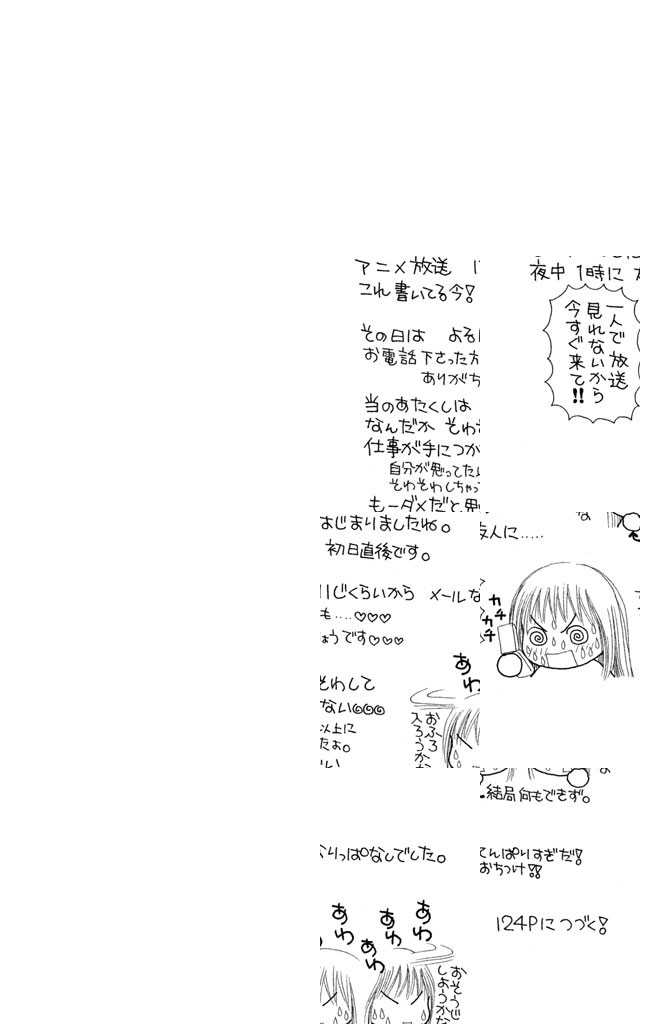 アニメ放送
これ書いてる今！
その日は
お電話下さった方
ありがち
当のあたくしは
なんだか
仕事が手につか
自分が勉ってたら
そわそわしちゃっ
もーダメだと
夜中 1時に
一人で放送
見れないから
今すぐ来て!!
はじまりましたね。
初日直後です。
くらいから メール
も....♡♡♡
ょうです♡♡♡
そわして
ない
以上に
たよ。
あわ
おふろ
友人に.....
カチ
カチ
なりっぱなしでした。
あわ
あわ
あわ
あわ
おそうじ
しようかな
結局何もできず。
てんぱりすぎだ！
おちつけ!!
124Pにつづく！